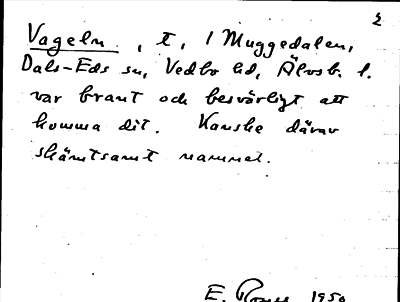 2
Vageln, t, i Muggedalen,
Dals-Eds sn, Vedbo hd, Älvsb. l.
var brant och besvärligt att
komma dit. Kanske därav
skämtsamt namnet.
E. 1950